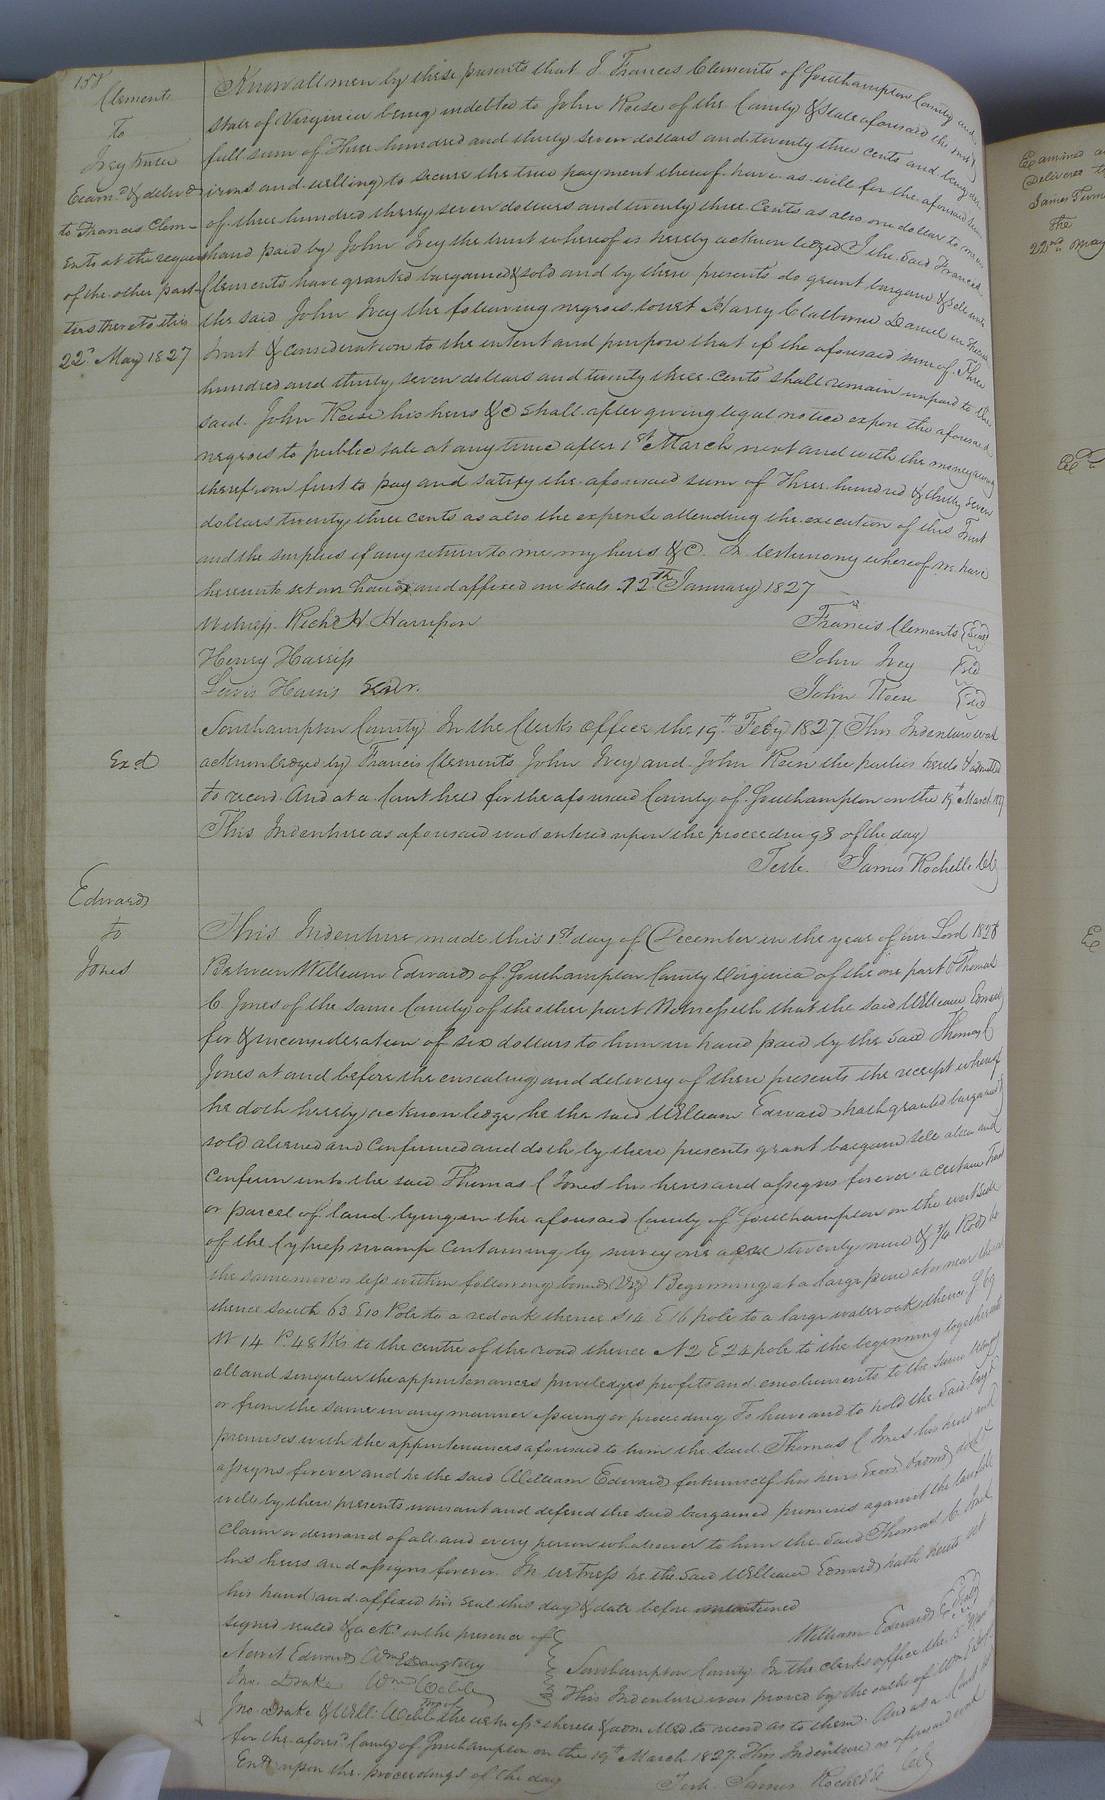 158
Clements
To
Ivey trustee
Exam.d & deliv.d
to Francis Clem-
ents at the request
of the other part-
ties thereto this
22.d May 1827
Know all men by these presents that I Francis Clements of Southampton County and
State of Virginia being indebted to John Reese of the County & State aforesaid the
full sum of Three hundred and thirty seven dollars and twenty three cents and being des-
irous and willing to secure the true payment thereof have as well for the aforesaid sum
of three hundred thirty seven dollars and twenty three Cents as also one dollar to me in
hand paid by John Ivey the trust whereof is hereby acknowledged I the said Francis
Clements have granted bargained & sold and by these presents do grant bargain & sell unto
the said John Ivey the following negroes towit Harry Claiborne Daniel in Special
trust & consideration to the intent and purpose that if the aforesaid sum of Three
hundred and thirty seven dollars and twenty three Cents shall remain unpaid to the
said John Reese his heirs &c shall after giving legal notice expose the aforesaid
negroes to public sale at any time after 1st March next and with the money arising
therefrom first to pay and satisfy the aforesaid sum of Three hundred & thirty seven
dollars twenty three cents as also the expense attending the execution of this Trust
and the surplus if any return to me my heirs &c. In testimony whereof we have
hereunto set our hands and affixed our seals 12th January 1827
Witness Richd H Harrison Francis Clements {Seal}
Henry Harriss John Ivey {Seal}
Lewis Harris Senr. John Reese {Seal}
Exd
Southampton County In the Clerks Office the 19th Feby 1827 This Indenture was
acknowledged by Francis Clements John Ivey and John Reese the parties hereto & admitted
to record. And at a Court held for the aforesaid County of Southampton on the 19th March 1827
This Indenture as aforesaid was entered upon the proceedings of the day
Teste James Rochelle Clk
Edwards
to
Jones
This Indenture made this 1st day of December in the year of our Lord 1826
Between William Edwards of Southampton County Virginia of the one part & Thomas
C. Jones of the same County of the other part Witnesseth that the said William Edwards
for & in consideration of six dollars to him in hand paid by the said Thomas C
Jones at and before the ensealing and delivery of these presents the receipt whereof
he doth hereby acknowledge he the said William Edwards hath granted bargained
sold aliened and Confirmed and doth by these presents grant bargain sell alien and
Confirm unto the said Thomas C Jones his heirs and assigns forever a certain Tract
or parcel of land lying in the aforesaid County of Southampton on the west side
of the Cypress swamp Containing by survey one acre twenty nine & 3/4 Rods be
the same more or less within following bounds Viz Beginning at a large pine at or near the
thence South 63 E 10 Pole to a red oak thence S 14 E 16 pole to a large water oak thence S 69
W 14 P. 48 lks to the centre of the road thence N 2 E 24 pole to the beginning together with
all and singular the appurtenances priviledges profits and emoluments to the same belong
or from the same in any manner issuing or proceeding To have and to hold the said barg.d
premises with the appurtenances aforesaid to him the said Thomas C Jones his heirs and
assigns forever and he the said William Edwards for himself his heirs Exors Admrs doth &
will by these presents warrant and defend the said bargained premises against the lawfull
Claim or demand of all and every person whatsoever to him the said Thomas C. Jones
his heirs and assigns forever. In witness he the said William Edwards hath hereto set
his hand and affixed his seal this day & date before mentioned
signed sealed & ackd in the presence of William Edwards {Seal}
Newit Edwards Wm E Daughtry
Jno. Drake Wm Webb
Southampton County In the clerks office the
This Indenture was proved by the oaths of Wm E Daughtry
Jno. Drake & Will. Webb the witnesses thereto & admitted to record as to them. And at a Court
for the afores.d County of Southampton on the 19th March 1827. This Indenture as aforesaid was
Entd upon the proceedings of the day Teste James Rochelle Clk
Examined and
Delivered to
James Turner
the
22nd May